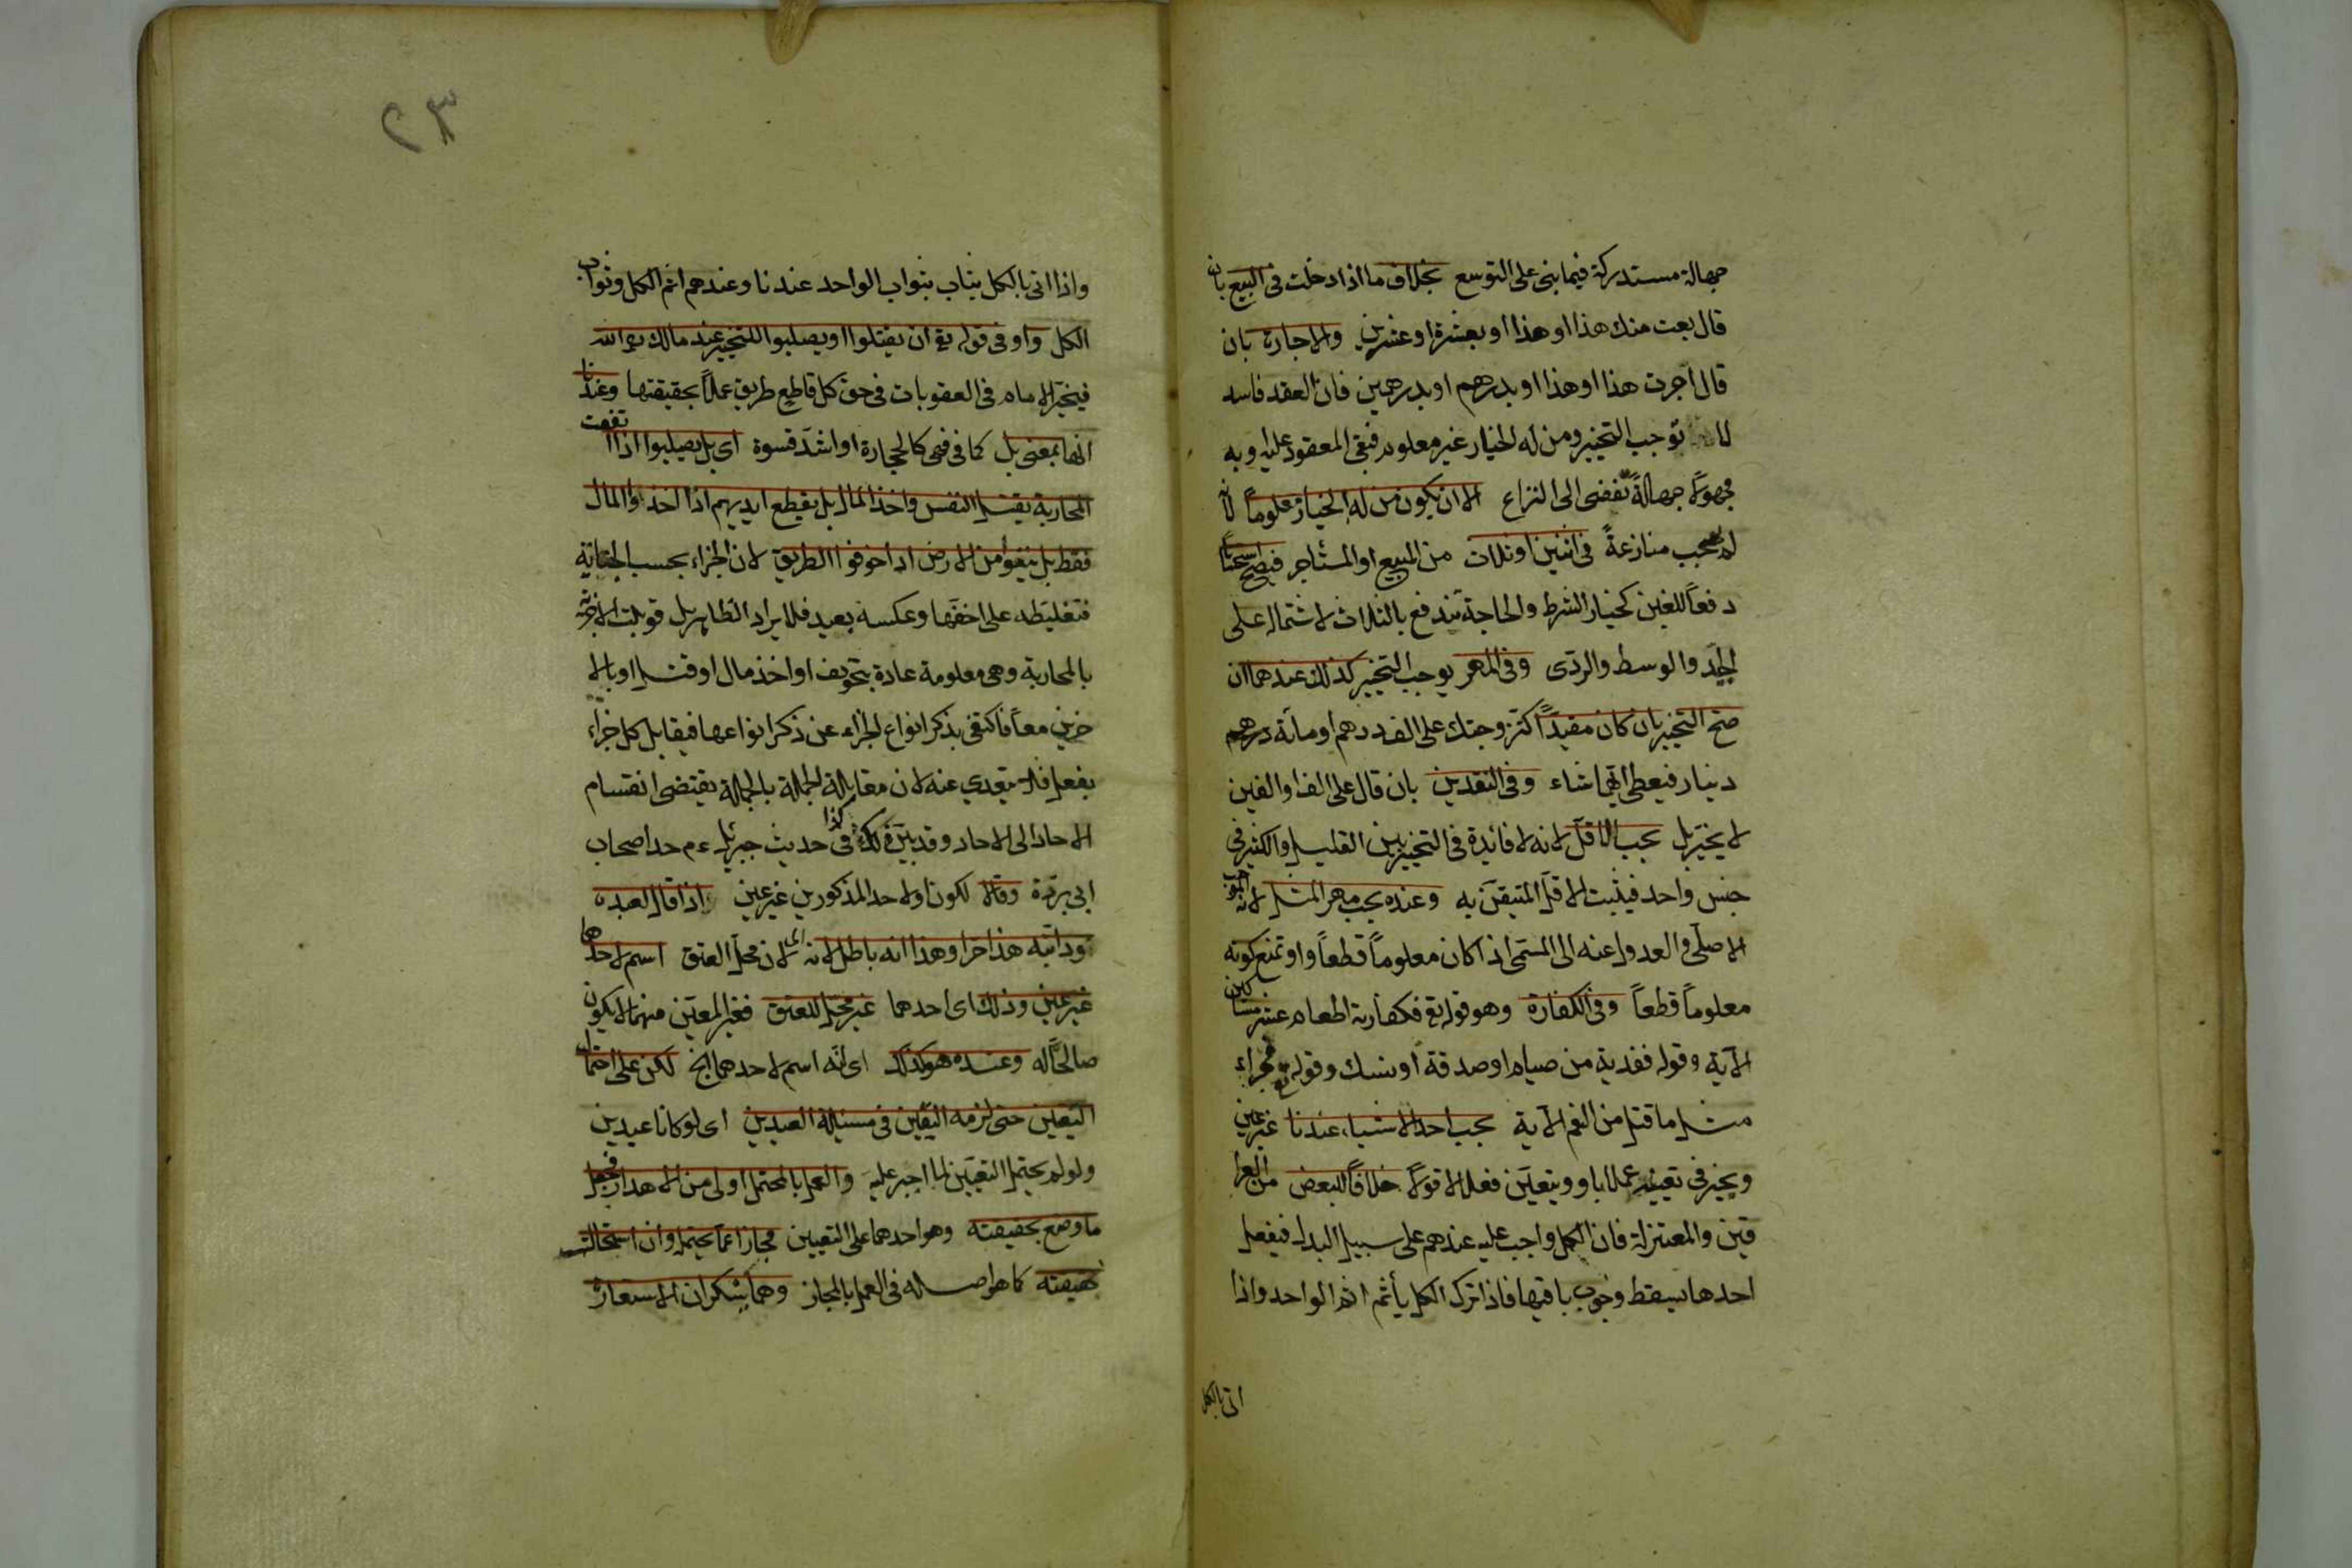 جهالة مستدركة فيما بنى على التوسع بخلاف ما اذا دخلت فى البيع بان
قال بعت منك هذا او هذا او بعشرة او عشرين والاجارة بان
قال اجرت هذا او هذا او بدرهم او بدرهمين فان العقد فاسد
توجب التخيير ومن له الخيار غير معلوم فبقى المعقود عليه وبه
مجهولا جهالةً تفضى الى النزاع الا ان يكون من له الخيار معلوماً لانه
منازعةً فى اثنين او ثلاث من المبيع او المستأجر فيصح استحسانا
دفعاً للغبن كخيار الشرط والحاجة تندفع بالثلاث لاشتماله على
الجيّد والوسط والردى وفى المهر يوجب التخيير كذلك عندهما ان
صح التخيير بان كان مفيدًا كتزوجتك على الف درهم او مائة
دينار فيعطى ايهما شاء وفى النقدين بان قال على الف او الفين
لا يخيّر بل يجب الاقل لانه لا فائدة فى التخيير بين القليل والكثير فى
جنس واحد فيثبت الاقل المتيقن به وعنده يجب مهر المثل لانه الموجب
الاصلّى والعدول عنه الى المسمّى اذا كان معلوماً قطعاً واو تمنع كونه
معلوماً قطعاً وفى الكفارة وهو قوله تع فكفارته اطعام عشرة مساكين
الآية وقوله ففدية من صيام او صدقة او نسك وقوله تع فجزاء
مثل ما قتل من النعم الآية يجب احد الاشياء عندنا غير عين
ويخير فى تعيينه عملا باو ويتعين فعلا لا قولا خلافًا للبعض من العرا
قين والمعتزلة فان الكل واجب عليه عندهم على سبيل البدل فيفعل
احدها يسقط وجوب باقيها فاذا ترك الكل يأثم اثم الواحد واذا
اتى بالكل
٢٣
واذا اتى بالكل يثاب بثواب الواحد عندنا وعندهم اثم الكل وثواب
الكل واو فى قوله تع ان يقتلوا او يصلبوا للتخيير عند مالك
فيخيّر الامام فى العقوبات فى حق كل قاطع طريق عملاً بحقيقتها وعندنا
انها بمعنى بل كما فى فهى كالحجارة او اشدّ قسوة اى بل يصلبوا اذا اتفقت
المحاربة بقتل النفس واخذ المال بل يقطع ايديهم اذا اخذوا المال
فقط بل ينفوا من الارض اذا خوفوا الطريق لان الجزاء بحسب الجناية
فتغليظه على اخفها وعكسه بعيد فلا يراد الظاهر بل قوبلت الاجزية
بالمحاربة وهى معلومة عادة بتخويف او اخذ مال او قتل او بالا
خرين معاً فاكتفى بذكر انواع الجزاء عن ذكر انواعها فيقابل كل جزاء
بفعل فلا يتعدى عنه لان مقابلة الجملة بالجملة يقتضى انقسام
الاحاد الى الاحاد وقد بيّن ذلك كذا فى حديث جبرئيل ءم حد اصحاب
ابى بردة وقالا لكون او لاحد المذكورين غير عين اذا قال لعبده
ودابّته هذا حر او هذا انه باطل لانه اى لان محل العتق اسم لاحدهما
غير عين وذلك اى احدهما غير محل للعتق فغير المعيّن منهما لا يكون
صالحًا له وعنده هو كذلك اى انّه اسم لاحدهما الخ لكن على احتمال
التعيين حتى لزمه التعيين فى مسئلة العبدين اى لو كانا عبدين
ولو لم يحتمل التعيين لما اجبر عليه والعمل بالمحتمل اولى من الاهدار فجعل
ما وضع بحقيقته وهو احدهما على التعيين مجازا عما يحتمله وان استحالت
حقيقته كما هو اصله فى العمل بالمجاز وهما ينكران الاستعارة